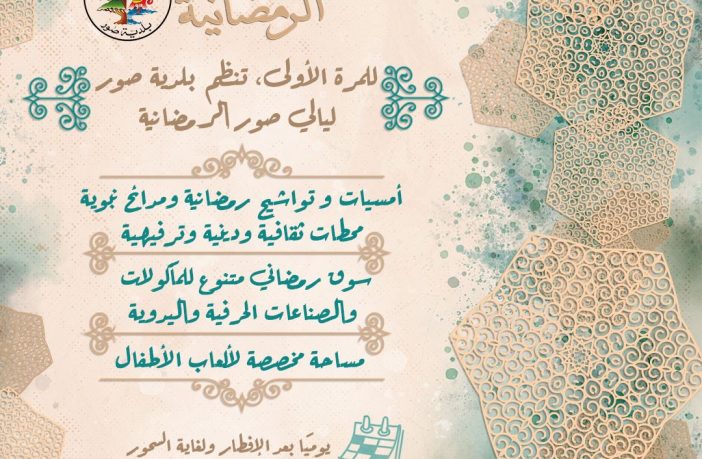 الرمضانية
بلدية صور
للمرة الأولى، تنظم بلدية صور
ليالي صور الرمضانية
أمسيات و تواشيح رمضانية ومدائح نبوية
محطات ثقافية ودينية وترفيهية
سوق رمضاني متنوع للمأكولات
والصناعات الحرفية واليدوية
مساحة مخصصة لألعاب الأطفال
يوميًا بعد الإفطار ولغاية السحور